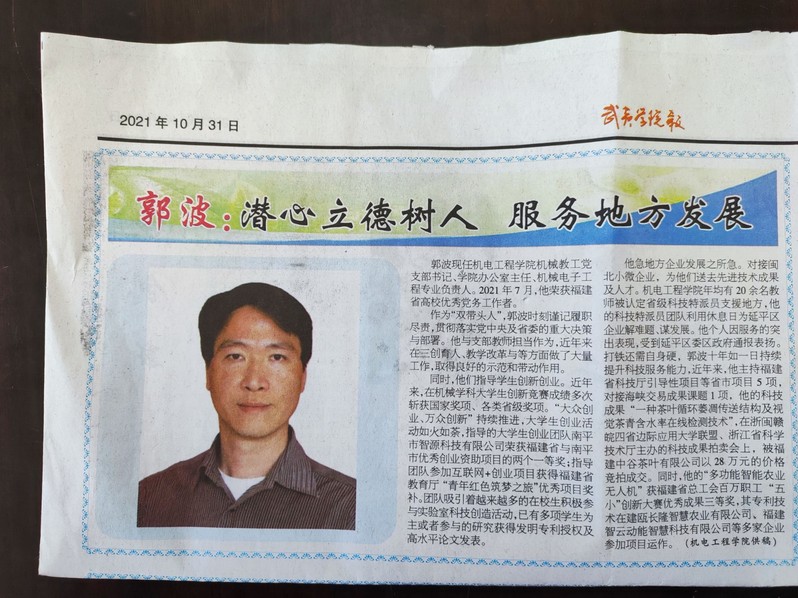 2021 年 10 月 31 日
武夷学院报
郭波：潜心立德树人 服务地方发展
郭波现任机电工程学院机械教工党
支部书记、学院办公室主任、机械电子工
程专业负责人。2021 年 7 月，他荣获福建
省高校优秀党务工作者。
作为“双带头人”，郭波时刻谨记履职
尽责，贯彻落实党中央及省委的重大决策
与部署。他与支部教师担当作为，近年来
在三创育人、教学改革与等方面做了大量
工作，取得良好的示范和带动作用。
同时，他们指导学生创新创业。近年
来，在机械学科大学生创新竞赛成绩多次
斩获国家奖项、各类省级奖项。“大众创
业、万众创新”持续推进，大学生创业活
动如火如荼，指导的大学生创业团队南平
市智源科技有限公司荣获福建省与南平
市优秀创业资助项目的两个一等奖；指导
团队参加互联网+创业项目获得福建省
教育厅“青年红色筑梦之旅”优秀项目奖
补。团队吸引着越来越多的在校生积极参
与实验室科技创造活动，已有多项学生为
主或者参与的研究获得发明专利授权及
高水平论文发表。
他急地方企业发展之所急。对接闽
北小微企业，为他们送去先进技术成果
及人才。机电工程学院年均有 20 余名教
师被认定省级科技特派员支援地方，他
的科技特派员团队利用休息日为延平区
企业解难题、谋发展。他个人因服务的突
出表现，受到延平区委区政府通报表扬。
打铁还需自身硬，郭波十年如一日持续
提升科技服务能力，近年来，他主持福建
省科技厅引导性项目等省市项目 5 项，
对接海峡交易成果课题 1 项。他的科技
成果“一种茶叶循环萎凋传送结构及视
觉茶青含水率在线检测技术”，在浙闽赣
皖四省边际应用大学联盟、浙江省科学
技术厅主办的科技成果拍卖会上，被福
建中谷茶叶有限公司以 28 万元的价格
竞拍成交。同时，他的“多功能智能农业
无人机”获福建省总工会百万职工“五
小”创新大赛优秀成果三等奖，其专利技
术在建瓯长隆智慧农业有限公司、福建
智云动能智慧科技有限公司等多家企业
参加项目运作。（机电工程学院供稿）